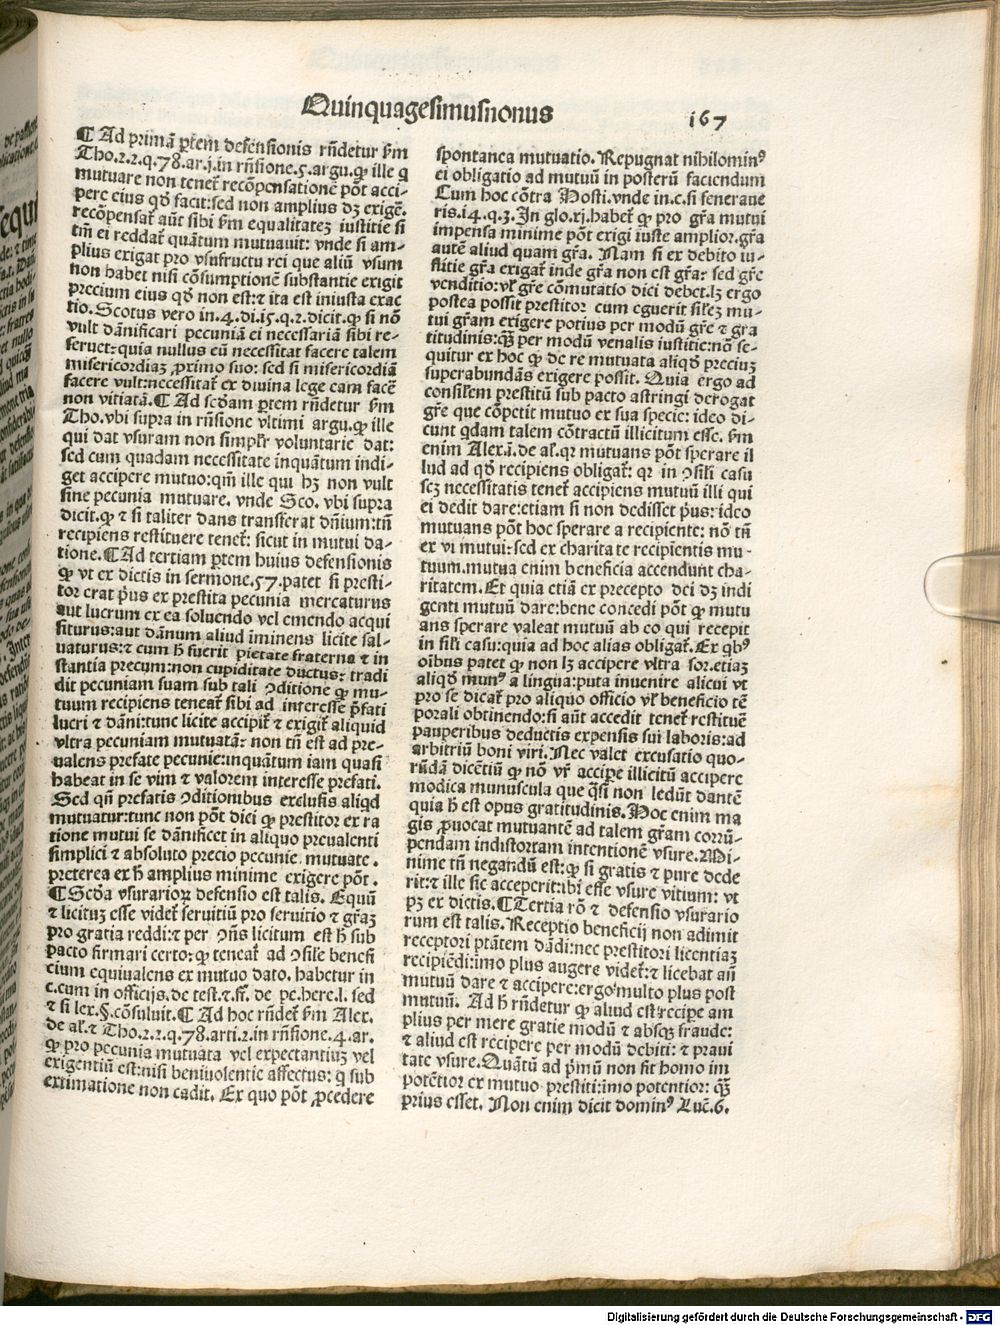 Quinquagesimusnonus
167
¶ Ad primā ꝑtem defensionis rñdetur ẜm
Tho.2.2.q.78.ar.j.in rñsione.5.argu.ꝙ ille q
mutuare non tenet᷑ recōpensationē pōt acci-
pere eius qđ facit:sed non amplius dʒ exigē.
recōpensat᷑ aūt sibi ẜm equalitateʒ iustitie si
tm̄ ei reddat᷑ quātum mutuauit: vnde si am-
plius exigat pro vsufructu rei que aliū vsum
non habet nisi cōsumptionē substantie exigit
precium eius qđ non est:⁊ ita est iniusta exac
tio.Scotus vero in.4.di.15.q.2.dicit.ꝙ si nō
vult dānificari pecuniā ei necessariā sibi re-
seruet:quia nullus eū necessitat facere talem
misericordiaʒ ꝓximo suo: sed si misericordiā
facere vult:necessitat᷑ ex diuina lege eam facē
non vitiatā.¶ Ad scďam ꝑtem rñdetur ẜm
Tho.vbi supra in rñsione vltimi argu.ꝙ ille
qui dat vsuram non simplr̄ voluntarie dat:
sed cum quadam necessitate inquātum indi-
get accipere mutuo:qm̄ ille qui hʒ non vult
sine pecunia mutuare. vnde Sco. vbi supra
dicit.ꝙ ⁊ si taliter dans transferat dñium:tn̄
recipiens restituere tenet᷑: sicut in mutui da-
tione.¶Ad tertiam ꝑtem huius defensionis
ꝙ vt ex dictis in sermone.57.patet si presti-
tor erat pꝰus ex prestita pecunia mercaturus
aut lucrum ex ea soluendo vel emendo acqui
siturus:aut dānum aliud iminens licite sal-
uaturus:⁊ cum ħ fuerit pietate fraterna ⁊ in
stantia precum:non cupiditate ductus: tradi
dit pecuniam suam sub tali ꝯditione ꝙ mu-
tuum recipiens teneat᷑ sibi ad interesse p̄fati
lucri ⁊ dāni:tunc licite accipit᷑ ⁊ exigit᷑ aliquid
vltra pecuniam mutuatā: non tn̄ est ad pre-
ualens prefate pecunie:inquātum iam quasi
habeat in se vim ⁊ valorem interesse prefati.
Sed qn̄ prefatis ꝯditionibus exclusis aliqd
mutuatur:tunc non pōt dici ꝙ prestitor ex ra
tione mutui se dānificet in aliquo preualenti
simplici ⁊ absoluto precio pecunie mutuate.
preterea ex ħ amplius minime exigere pōt.
¶Scďa vsurarioꝝ defensio est talis. Equū
⁊ licituʒ esse videt᷑ seruitiū pro seruitio ⁊ gr̄aʒ
pro gratia reddi:⁊ per ꝯn̄s licitum est ħ sub
pacto firmari certo: ꝙ teneat᷑ ad ꝯsile benefi
cium equiualens ex mutuo dato. habetur in
c.cum in officijs.de test.⁊.ff. de pe.here.l. sed
⁊ si lex.§.cōsuluit.¶ Ad hoc rñdet᷑ ẜm Alex.
de al᷑.⁊ Tho.2.2.q.78.arti.2.in rñsione.4.ar.
ꝙ pro pecunia mutuata vel expectantiuʒ vel
exigentiū est:nisi beniuolentie affectus: q sub
extimatione non cadit. Ex quo pōt ꝓcedere
spontanea mutuatio. Repugnat nihilominꝰ
ei obligatio ad mutuū in posterū faciendum
Cum hoc cōtra Hosti.vnde in.c.si feneraue
ris.14.q.3.In glo.xj.habet᷑ ꝙ pro gr̄a mutui
impensa minime pōt exigi iuste amplior.gr̄a
autē aliud quam gr̄a. Nam si ex debito iu-
stitie gr̄a exigat᷑ inde gr̄a non est gr̄a: sed gr̄e
venditio:vl᷑ gr̄e cōmutatio dici debet.lʒ ergo
postea possit prestitor cum eguerit sileʒ mu-
tui gr̄am exigere potius per modū gr̄e ⁊ gra
titudinis:qꝫ̄ per modū venalis iustitie:nō se-
quitur ex hoc ꝙ de re mutuata aliqď preciuʒ
superabundās exigere possit. Quia ergo ad
consilem prestitū sub pacto astringi derogat
gr̄e que cōpetit mutuo ex sua specie: ideo di-
cunt qdam talem cōtractū illicitum esse. ẜm
enim Alex.ā.de al᷑.qr mutuans pōt sperare il
lud ad qđ recipiens obligat᷑: qr in ꝯsili casu
scʒ necessitatis tenet᷑ accipiens mutuū illi qui
ei dedit dare:etiam si non dedisset pꝰus: ideo
mutuans pōt hoc sperare a recipiente: nō tn̄
ex vi mutui:sed ex charita te recipientis mu-
tuum.mutua enim beneficia accendunt cha-
ritatem.Et quia etiā ex precepto dei dʒ indi
genti mutuū dare:bene concedi pōt ꝙ mutu
ans sperare valeat mutuū ab eo qui recepit
in sili casu:quia ad hoc alias obligat᷑.Ex qbꝰ
oībus patet ꝙ non lʒ accipere vltra sor.etiaʒ
aliqď munꝰ a lingua:puta inuenire alicui vt
pro se dicat᷑ pro aliquo officio vl᷑ beneficio tē
porali obtinendo:si aūt accedit tenet᷑ restituē
pauperibus deductis expensis sui laboris:ad
arbitriū boni viri.Nec valet excusatio quo-
rūdā dicētiū ꝙ nō vr̄ accipe illicitū accipere
modica munuscula que qsi non ledūt dantē
quia ħ est opus gratitudinis.Hoc enim ma
gis ꝓuocat mutuantē ad talem gr̄am corrū-
pendam indistortam intentionē vsure.Mi-
nime tn̄ negandū est:ꝙ si gratis ⁊ pure dede
rit:⁊ ille sic acceperit:ibi esse vsure vitium: vt
pʒ ex dictis.¶Tertia rō ⁊ defensio vsurario
rum est talis.Receptio beneficij non adimit
receptori ptātem dādi:nec prestitori licentiaʒ
recipiēdi:imo plus augere videt᷑:⁊ licebat an̄
mutuū dare ⁊ accipere:ergo multo plus post
mutuū. Ad ħ rñdetur ꝙ aliud est recipe am
plius per mere gratie modū ⁊ absqꝫ fraude:
⁊ aliud est recipere per modū debiti: ⁊ praui
tate vsure.Quātū ad pꝰmū non fit homo im
potētior ex mutuo prestiti:imo potentior: qꝫ̄
prius esset. Non enim dicit dominꝰ Luc̄.6.
Digitalisierung gefördert durch die Deutsche Forschungsgemeinschaft - DFG